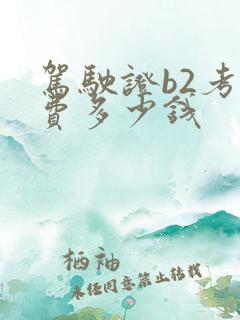 駕駛證b2考
費多少錢
栖袖
未经同意禁止转载